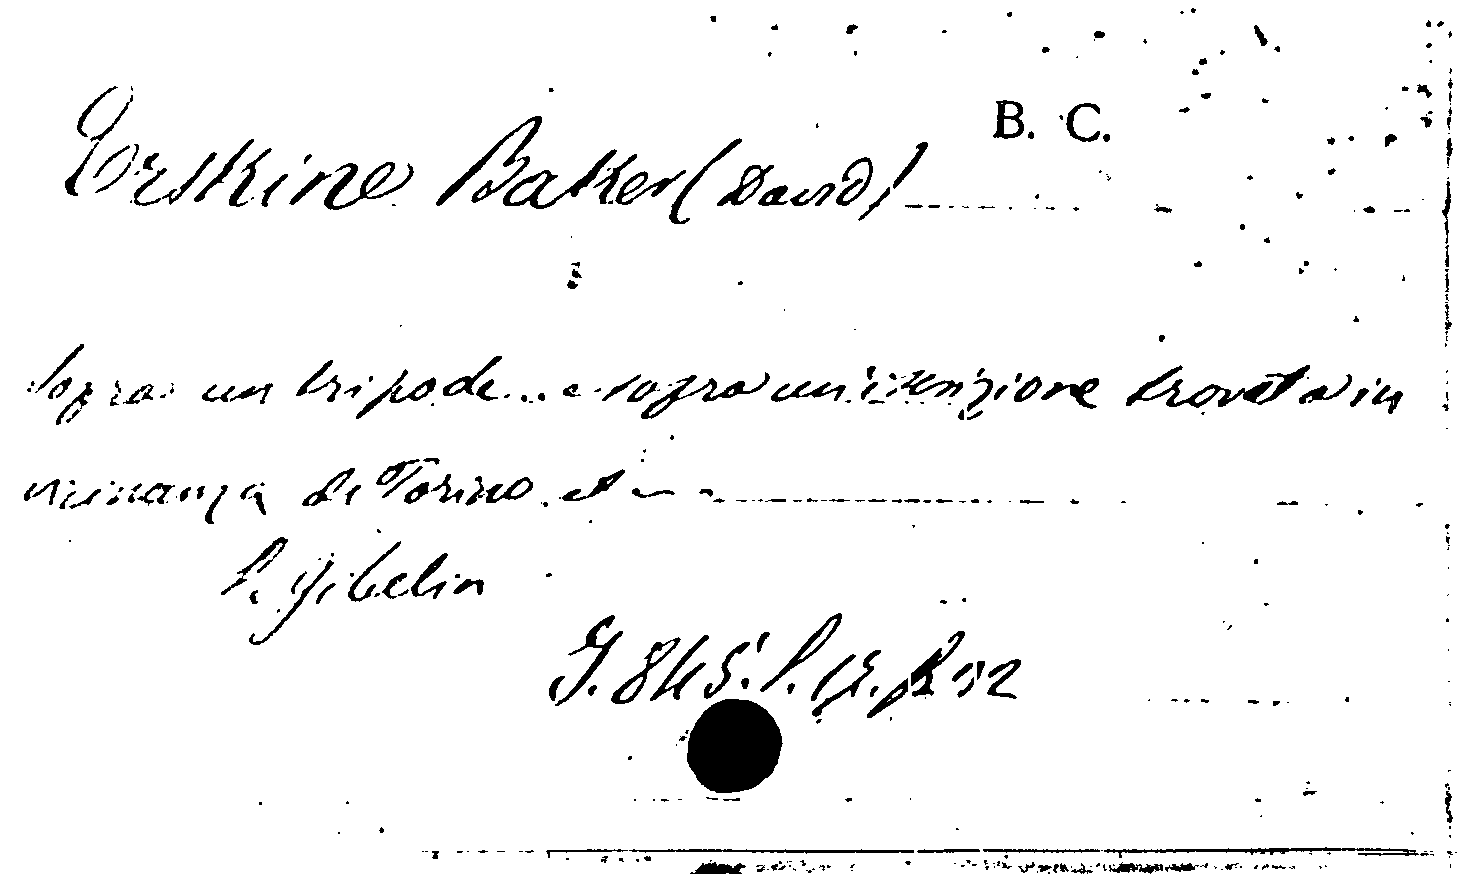 B. C.
Erskine Baker (David)
Sopra un tripode... e sopra un'iscrizione trovata in
vicinanza di Torino. et
P. Gibelin